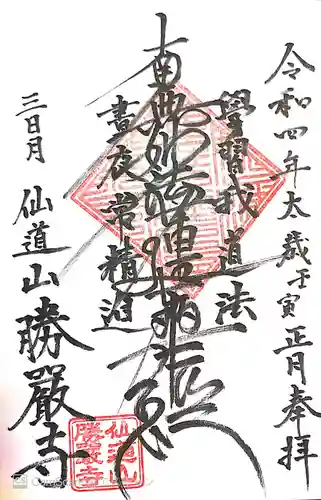 令和四年太歳壬寅正月奉拝
學習我道法
南無妙法蓮華経
晝夜常精進
三日月 仙道山 勝嚴寺
仙道山
勝嚴寺
CamScanner